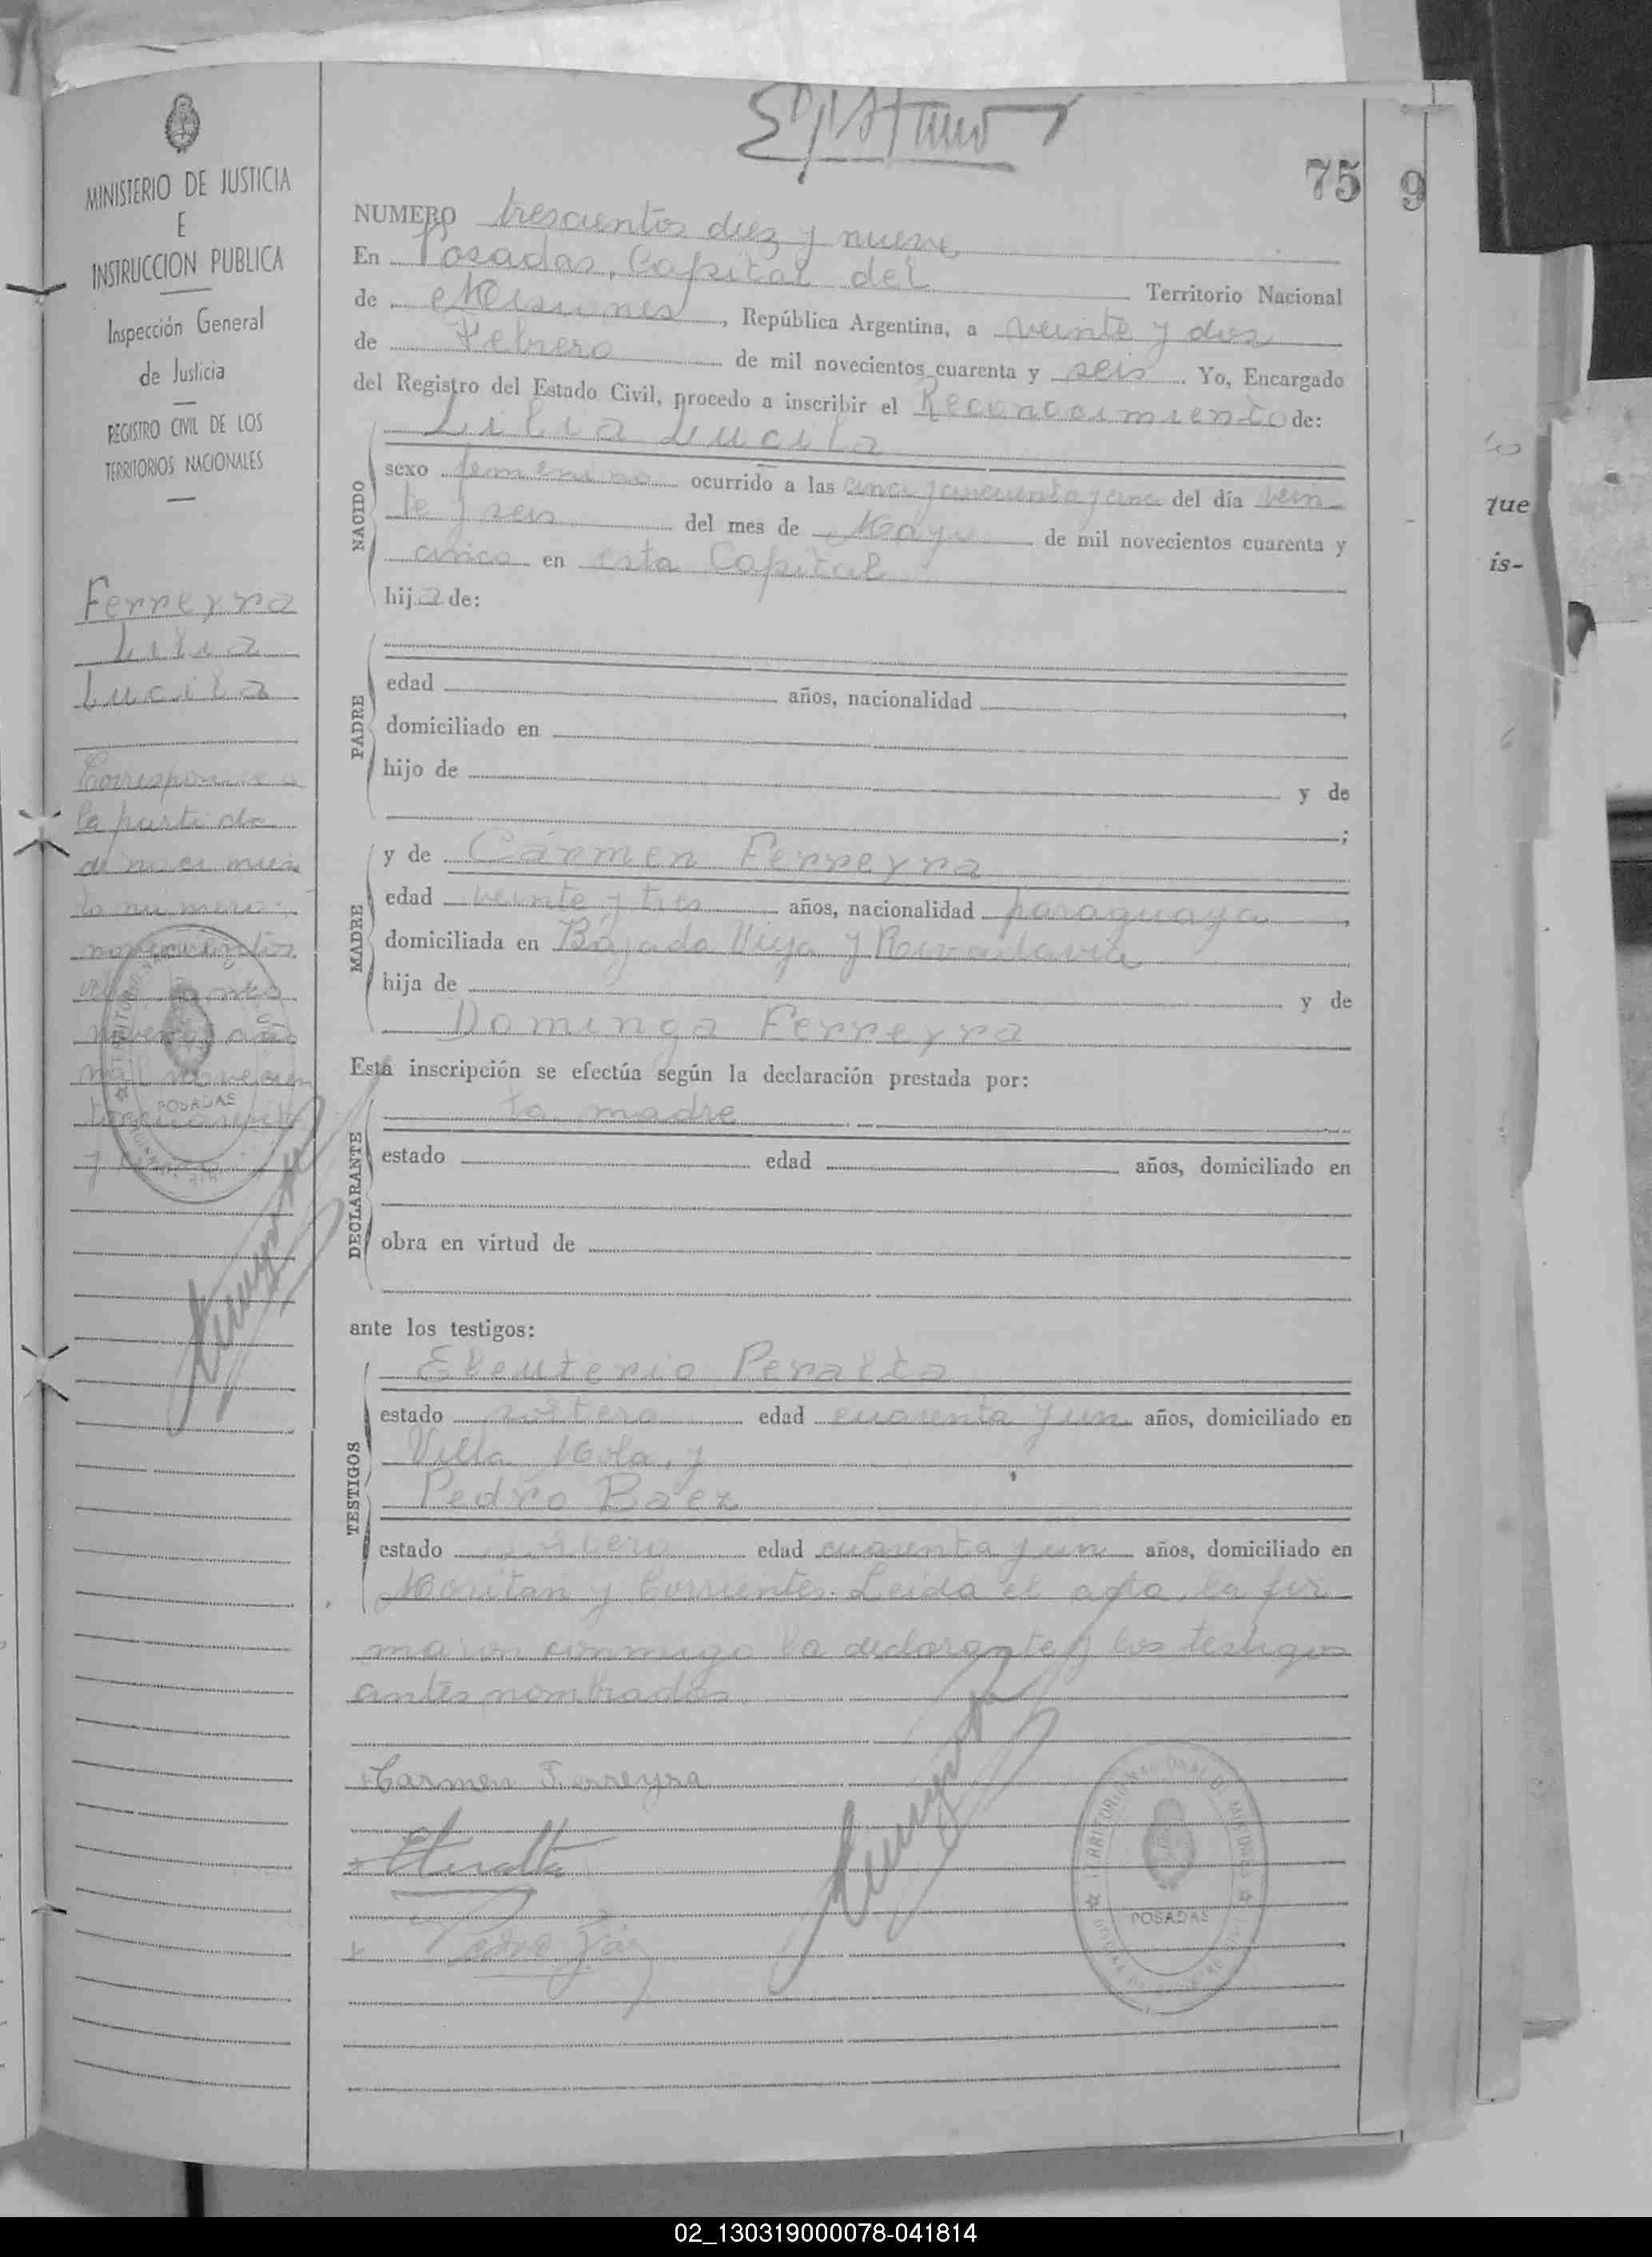 MINISTERIO DE JUSTICIA
E
INSTRUCCION PUBLICA
Inspección General
de Justicia
REGISTRO CIVIL DE LOS
TERRITORIOS NACIONALES
Ferreyra
Lilia
Lucila
Corresponde a
la partida
de nacimien
to numero
novecientos
nueve año
mil novecien
tos cuarenta
y cinco
POSADAS
75
9
NUMERO trescientos diez y nueve
En Posadas, Capital del Territorio Nacional
de Misiones, República Argentina, a veinte y dos
de Febrero de mil novecientos cuarenta y seis. Yo, Encargado
del Registro del Estado Civil, procedo a inscribir el Reconocimiento de:
Lilia Lucila
NACIDO
sexo femenino ocurrido a las cinco y cincuenta y cinco del día vein
te y seis del mes de Mayo de mil novecientos cuarenta y
cinco en esta Capital
hija de:
PADRE
edad años, nacionalidad
domiciliado en
hijo de y de
;
MADRE
y de Cármen Ferreyra
edad veinte y tres años, nacionalidad paraguaya,
domiciliada en Bajada Vieja y Rivadavia
hija de y de
Dominga Ferreyra
Esta inscripción se efectúa según la declaración prestada por:
DECLARANTE
la madre
estado edad años, domiciliado en
obra en virtud de
ante los testigos:
TESTIGOS
Eleuterio Peralta
estado soltero edad cuarenta y un años, domiciliado en
Villa Mola, y
Pedro Baez
estado soltero edad cuarenta y un años, domiciliado en
Moritan y Corrientes. Leida el acta, la fir
maron conmigo la declarante y los testigos
antes nombrados
Carmen Ferreyra
EPeralta
Pedro Báez
TERRITORIO NACIONAL DE MISIONES
POSADAS
que
is-
02_130319000078-041814